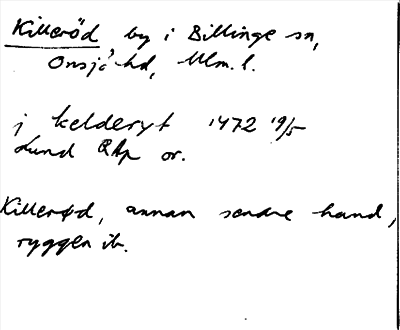 Killeröd by i Billinge sn,
Onsjö hd, Mlm. l.
j kelderyt 1472 19/5
Lund RAp or.
Killerød, annan senare hand,
ryggen ib.